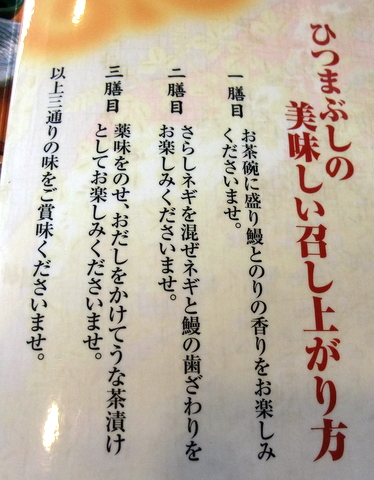 ひつまぶしの
美味しい召し上がり方
一膳目
お茶碗に盛り鰻とのりの香りをお楽しみ
くださいませ。
二膳目
さらしネギを混ぜネギと鰻の歯ざわりを
お楽しみくださいませ。
三膳目
薬味をのせ、おだしをかけてうな茶漬け
としてお楽しみくださいませ。
以上三通りの味をご賞味くださいませ。